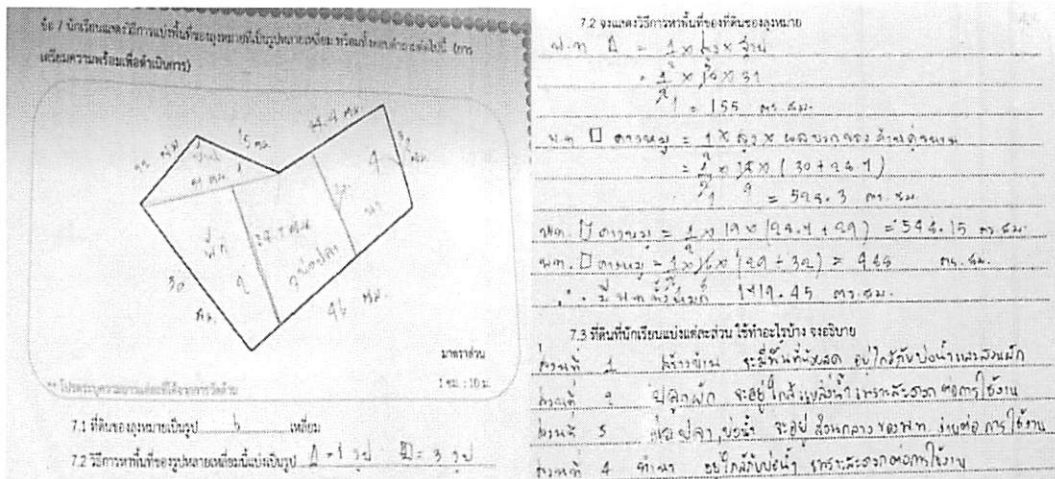 ข้อ 7 นักเรียนแสดงวิธีการแบ่งพื้นที่ของลุงหมายที่เป็นรูปหลายเหลี่ยม พร้อมทั้งตอบคำถามต่อไปนี้ (การ
เตรียมความพร้อมเพื่อดำเนินการ)
15 ซม.
32 ซม.
31 ซม. 1
4
นา
ที่
2
บ่อปลา
30
ซม.
46 ซม.
มาตราส่วน
1 ซม. : 10 ม.
** โปรดระบุความยาวแต่ละที่ได้จากการวัดด้าน
7.1 ที่ดินของลุงหมายเป็นรูป 6 เหลี่ยม
7.2 วิธีการหาพื้นที่ของรูปหลายเหลี่ยมนี้แบ่งเป็นรูป Δ = 1 รูป = 3 รูป
7.2 จงแสดงวิธีการหาพื้นที่ของที่ดินของลุงหมาย
พ.ท Δ = 1/2 × สูง × ฐาน
= 1/2 × 10 × 31
= 155 ตร.ซม.
พ.ท □ คางหมู = 1/2 × สูง × ผลบวกของด้านคู่ขนาน
= 1/2 × 18 × (30 + 28.7)
= 528.3 ตร.ซม.
พ.ท. □ คางหมู = 1/2 × 19 × (28.7 + 29) = 548.15 ตร.ซม.
พ.ท. □ คางหมู = 1/2 × 16 × (29 + 32) = 488 ตร.ซม.
∴ มีพ.ท ทั้งหมด 1719.45 ตร.ซม.
7.3 ที่ดินที่นักเรียนแบ่งแต่ละส่วน ใช้ทำอะไรบ้าง จงอธิบาย
ส่วนที่ 1 สร้างบ้าน จะมีพื้นที่น้อยสุด อยู่ใกล้กับบ่อน้ำและสวนผัก
ส่วนที่ 2 ปลูกผัก จะอยู่ใกล้แหล่งน้ำ เพราะสะดวกต่อการใช้งาน
ส่วนที่ 3 บ่อปลา,บ่อน้ำ จะอยู่ส่วนกลางของพ.ท ง่ายต่อการใช้งาน
ส่วนที่ 4 ทำนา อยู่ใกล้กับบ่อน้ำ เพราะสะดวกต่อการใช้งาน